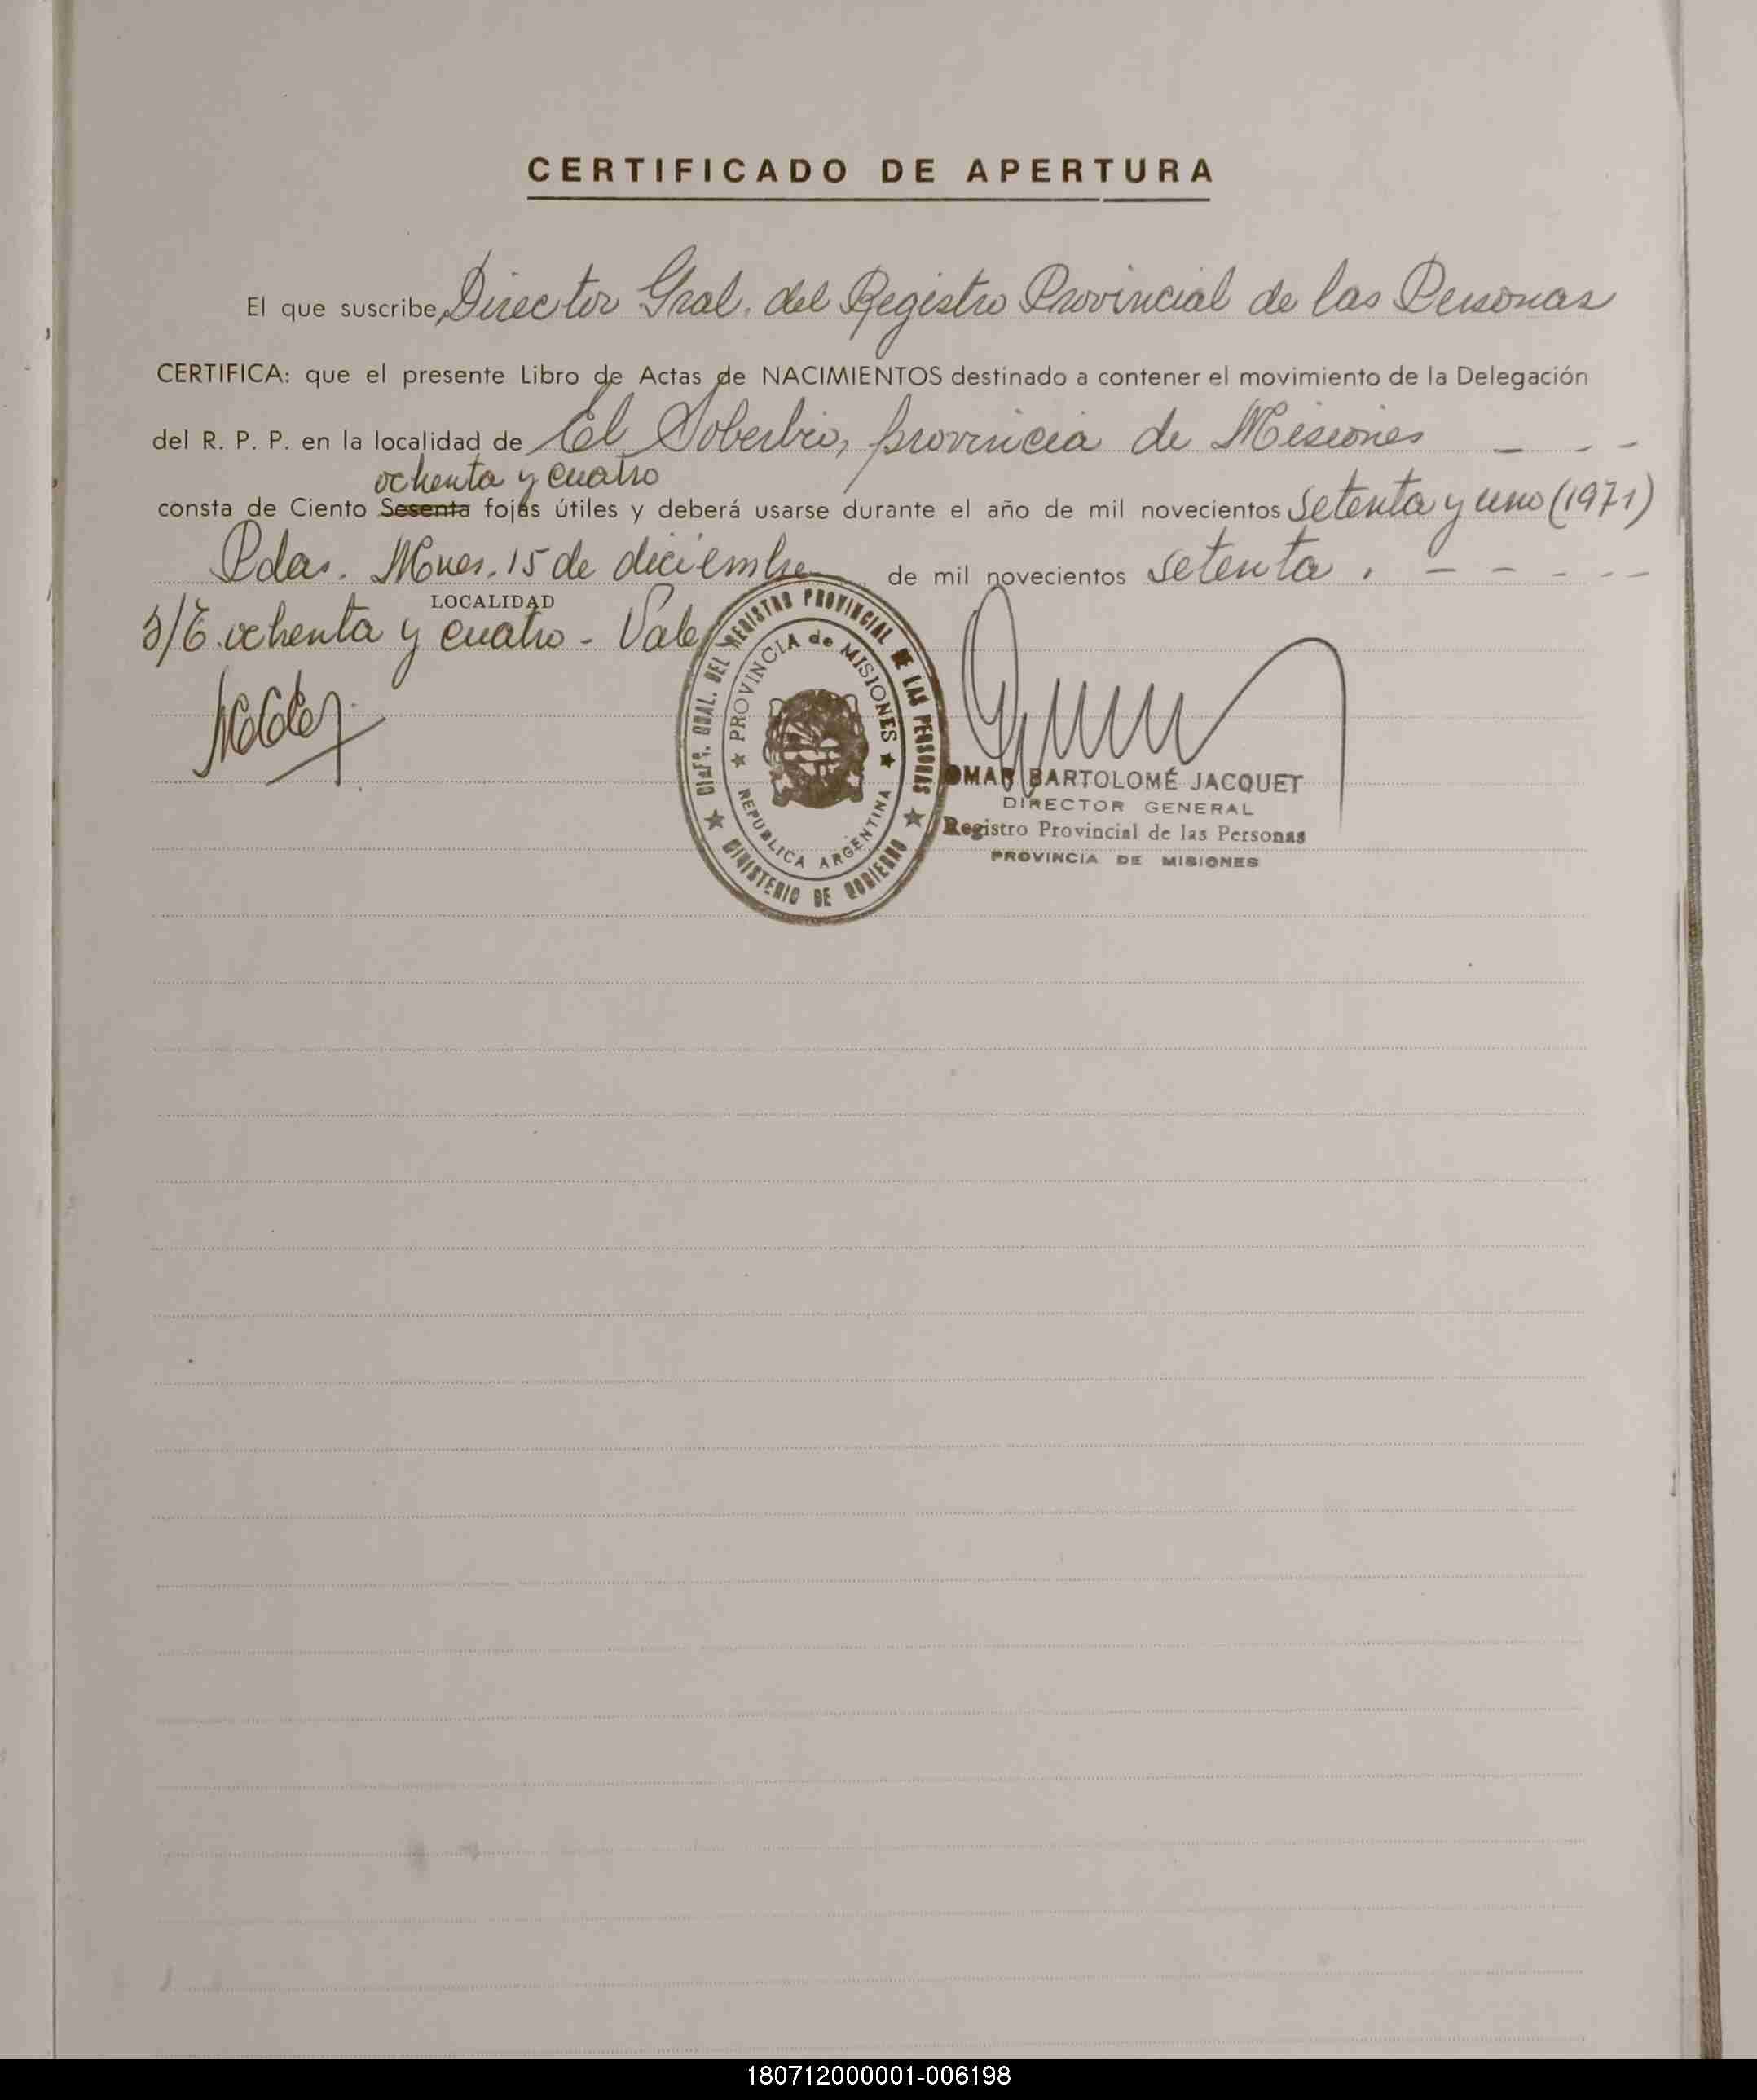 CERTIFICADO DE APERTURA
El que suscribe, Director Gral. del Registro Provincial de las Personas
CERTIFICA: que el presente Libro de Actas de NACIMIENTOS destinado a contener el movimiento de la Delegación
del R. P. P. en la localidad de El Soberbio, provincia de Misiones - - -
ochenta y cuatro
consta de Ciento Sesenta fojas útiles y deberá usarse durante el año de mil novecientos setenta y uno (1971)
Pdas. Mnes. 15 de diciembre de mil novecientos setenta. - - - - -
LOCALIDAD
S/E. ochenta y cuatro - Vale
DIREC. GRAL. DEL REGISTRO PROVINCIAL DE LAS PERSONAS
PROVINCIA de MISIONES
REPUBLICA ARGENTINA
MINISTERIO DE GOBIERNO
OMAR BARTOLOMÉ JACQUET
DIRECTOR GENERAL
Registro Provincial de las Personas
PROVINCIA DE MISIONES
180712000001-006198